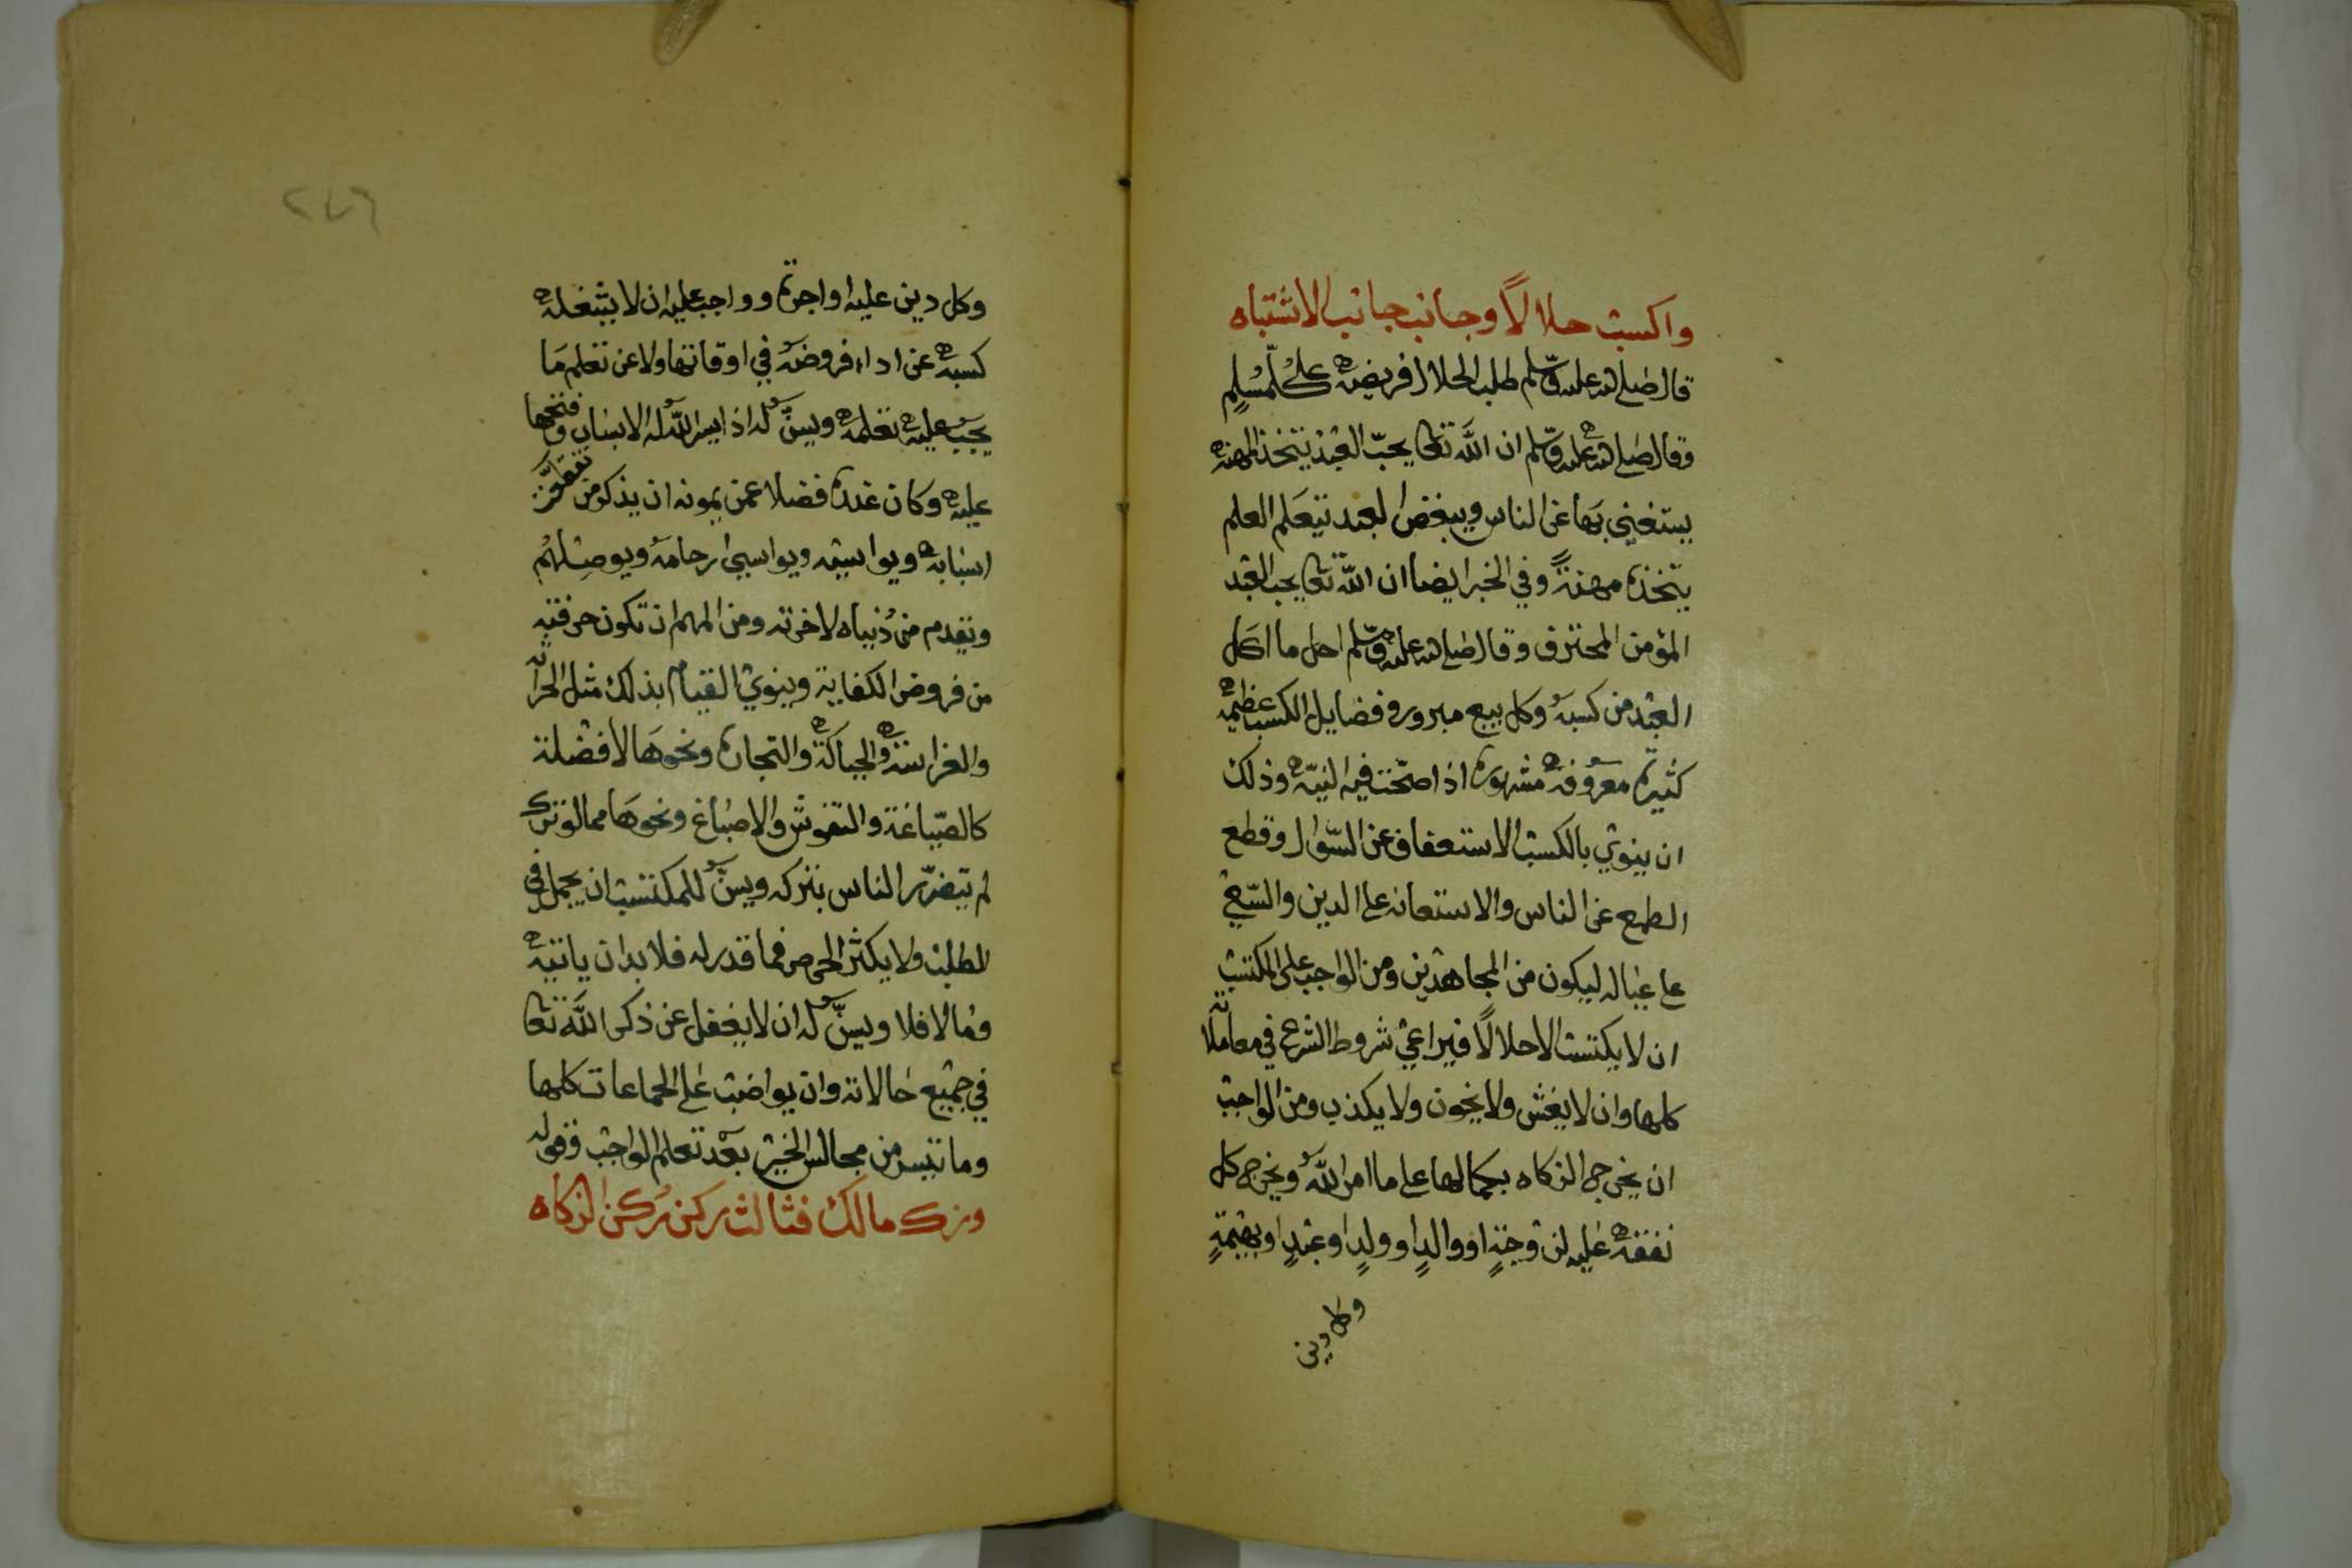 واكسب حلالًا وجانب جانب الاشتباه
قال صلى الله عليه وسلم طلب الحلال فريضة على كل مسلم
وقال صلى الله عليه وسلم ان الله تعالى يحبّ العبد يتخذ المهنة
يستغني بها عن الناس ويبغض العبد يتعلم العلم
يتخذه مهنةً وفي الخبر ايضا ان الله تعالى يحب العبد
المؤمن المحترف وقال صلى الله عليه وسلم احل ما اكل
العبد من كسبه وكل بيع مبرور وفضايل الكسب عظيمة
كثيرة معروفة مشهورة اذا صحّت فيه النيّة وذلك
ان ينوي بالكسب الاستعفاف عن السّؤال وقطع
الطمع عن الناس والاستعانه على الدين والسّعي
على عياله ليكون من المجاهدين ومن الواجب على المكتسب
ان لا يكتسب الا حلالًا فيراعي شروط الشرع في معاملاته
كلها وان لا يغش ولا يخون ولا يكذب ومن الواجب
ان يخرج الزكاه بكمالها على ما امر الله ويخرج كل
نفقة عليه لزوجةٍ او والدٍ او ولدٍ او عبدٍ او بهيمةٍ
وكل دين
٢٧٦
وكل دين عليه او اجرة وواجب عليه ان لا يشغله
كسبه عن اداء فروضه في اوقاتها ولا عن تعلم ما
يجب عليه تعلمه ويسنّ له اذا يسر الله له الاسباب وفتحها
عليه وكان عنده فضلا عمن يمونه ان يذكر من تعذّر
اسبابه ويواسيه ويواسي ارحامه ويوصلهم
ويقدم من دنياه لاخرته ومن المهم ان تكون حرفته
من فروض الكفاية وينوي القيام بذلك مثل الحراثه
والغراسة والحياكة والتجارة ونحوها لا فضلة
كالصّياغة والنقوش والاصباغ ونحوها مما لو ترك
لم يتضرّر الناس بتركه ويسنّ للمكتسب ان يجمل في
الطلب ولا يكثر الحرص فما قدر له فلا بد ان ياتيه
وما لا فلا ويسنّ له ان لا يغفل عن ذكر الله تعالى
في جميع حالاته وان يواضب على الجماعات كلها
وما تيسر من مجالس الخير بعد تعلم الواجب وقوله
وزك مالك فثالث ركن ركن الزكاه